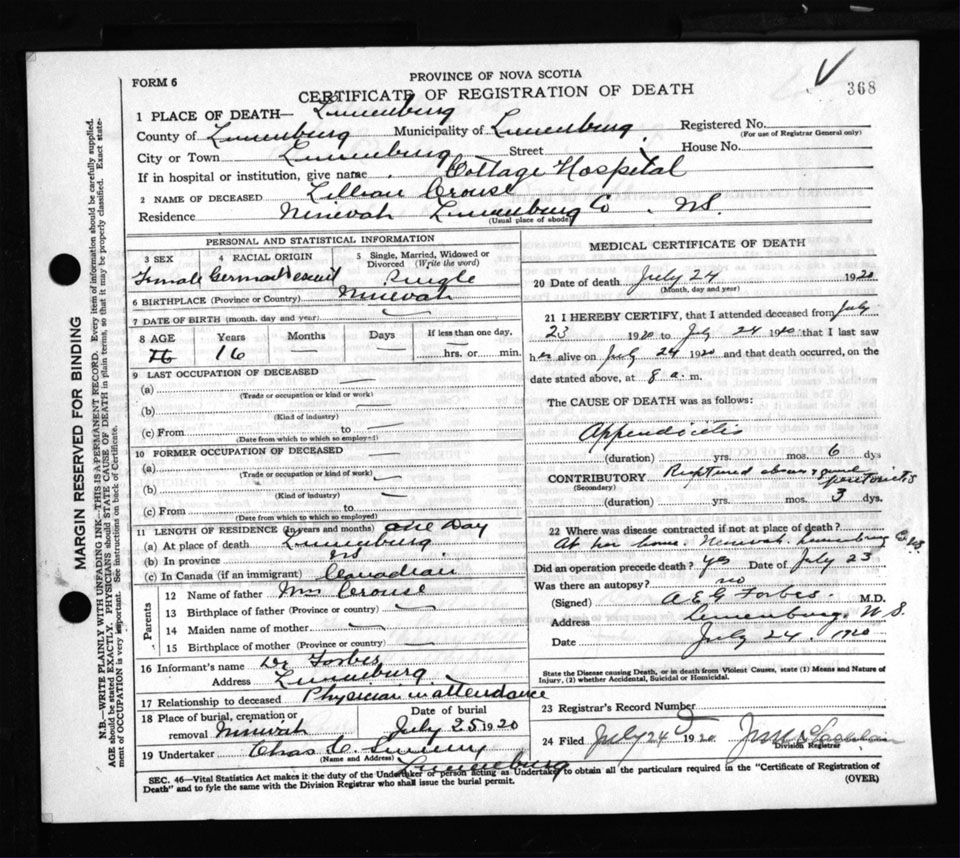 PROVINCE OF NOVA SCOTIA
FORM 6
CERTIFICATE OF REGISTRATION OF DEATH
368
1 PLACE OF DEATH— Lunenburg
County of Lunenburg Municipality of Lunenburg Registered No.
(For use of Registrar General only)
City or Town Lunenburg Street House No.
If in hospital or institution, give name Cottage Hospital
2 NAME OF DECEASED Lillian Crouse
Residence Ninevah Lunenburg Co. NS.
(Usual place of abode)
PERSONAL AND STATISTICAL INFORMATION
3 SEX 4 RACIAL ORIGIN 5 Single, Married, Widowed or Divorced (Write the word)
Female German Descent Single
6 BIRTHPLACE (Province or Country) Ninevah
7 DATE OF BIRTH (month, day and year)
8 AGE Years Months Days If less than one day,
16 hrs. or min.
9 LAST OCCUPATION OF DECEASED
(a)
(Trade or occupation or kind or work)
(b)
(Kind of industry)
(c) From to
(Date from which to which so employed)
10 FORMER OCCUPATION OF DECEASED
(a)
(Trade or occupation or kind of work)
(b)
(Kind of industry)
(c) From to
(Date from which to which so employed)
11 LENGTH OF RESIDENCE (In years and months) One Day
(a) At place of death Lunenburg
(b) In province NS
(c) In Canada (if an immigrant) Canadian
Parents
12 Name of father Crouse
13 Birthplace of father (Province or country)
14 Maiden name of mother
15 Birthplace of mother (Province or country)
16 Informant's name Dr Forbes
Address Lunenburg
17 Relationship to deceased Physician in attendance
18 Place of burial, cremation or removal Ninevah
Date of burial
July 25 1920
19 Undertaker Chas
(Name and Address)
Lunenburg
MEDICAL CERTIFICATE OF DEATH
20 Date of death July 24 1920
(Month, day and year)
21 I HEREBY CERTIFY, that I attended deceased from July
23 1920 to July 24 1920 that I last saw
her alive on July 24 1920 and that death occurred, on the
date stated above, at 8 a. m.
The CAUSE OF DEATH was as follows:
Appendicitis
(duration) yrs. mos. 6 dys
CONTRIBUTORY Ruptured peritonitis
(Secondary)
(duration) yrs. mos. 3 dys.
22 Where was disease contracted if not at place of death?
At her home. Ninevah. Lunenburg Co. NS
Did an operation precede death? yes Date of July 23
Was there an autopsy? no
(Signed) A E G Forbes. M.D.
Address Lunenburg, N.S.
Date July 24. 1920
State the Disease causing Death, or in death from Violent Causes, state (1) Means and Nature of
Injury, (2) whether Accidental, Suicidal or Homicidal.
23 Registrar's Record Number
24 Filed July 24 1920
Division Registrar
SEC. 46—Vital Statistics Act makes it the duty of the Undertaker or person acting as Undertaker to obtain all the particulars required in the "Certificate of Registration of
Death" and to fyle the same with the Division Registrar who shall issue the burial permit. (OVER)
MARGIN RESERVED FOR BINDING
N.B.—WRITE PLAINLY WITH UNFADING INK—THIS IS A PERMANENT RECORD. Every item of information should be carefully supplied.
AGE should be stated EXACTLY. PHYSICIANS should STATE CAUSE OF DEATH in plain terms, so that it may be properly classified. Exact state-
ment of OCCUPATION is very important. See instructions on back of Certificate.